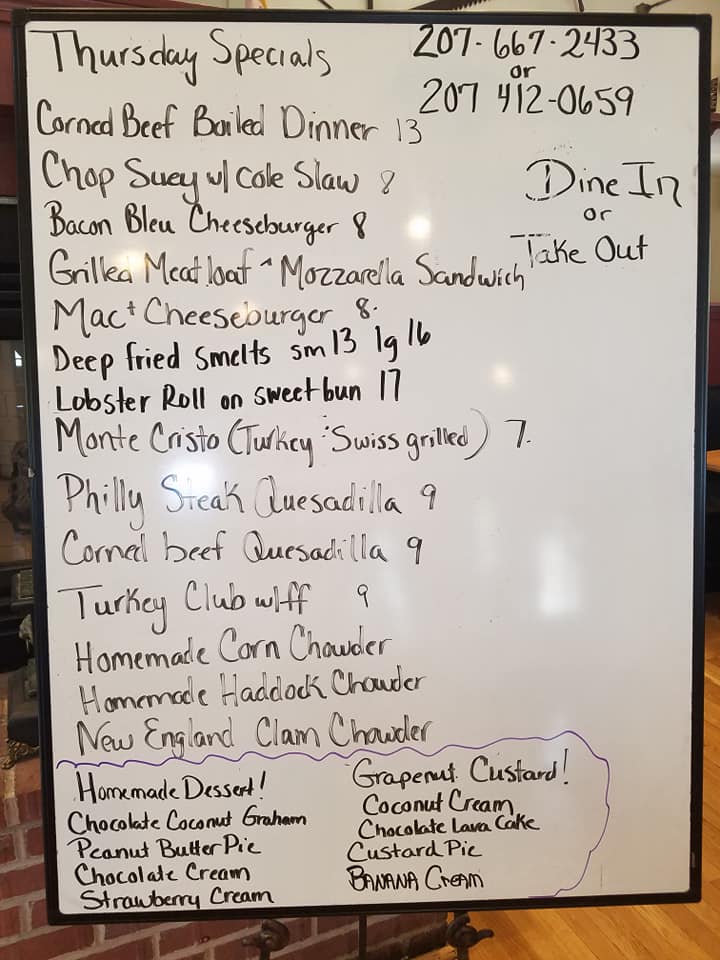 Thursday Specials
207-667-2433
or
207 412-0659
Corned Beef Boiled Dinner 13
Chop Suey w/ Cole Slaw 8
Dine In
or
Take Out
Bacon Bleu Cheeseburger 8
Grilled Meatloaf ^ Mozzarella Sandwich
Mac + Cheeseburger 8.
Deep fried smelts sm 13 lg 16
Lobster Roll on sweet bun 17
Monte Cristo (Turkey : Swiss grilled) 7.
Philly Steak Quesadilla 9
Corned beef Quesadilla 9
Turkey Club w/ff 9
Homemade Corn Chowder
Homemade Haddock Chowder
New England Clam Chowder
Homemade Dessert!
Chocolate Coconut Graham
Peanut Butter Pie
Chocolate Cream
Strawberry Cream
Grapenut Custard!
Coconut Cream
Chocolate Lava Cake
Custard Pie
BANANA Cream